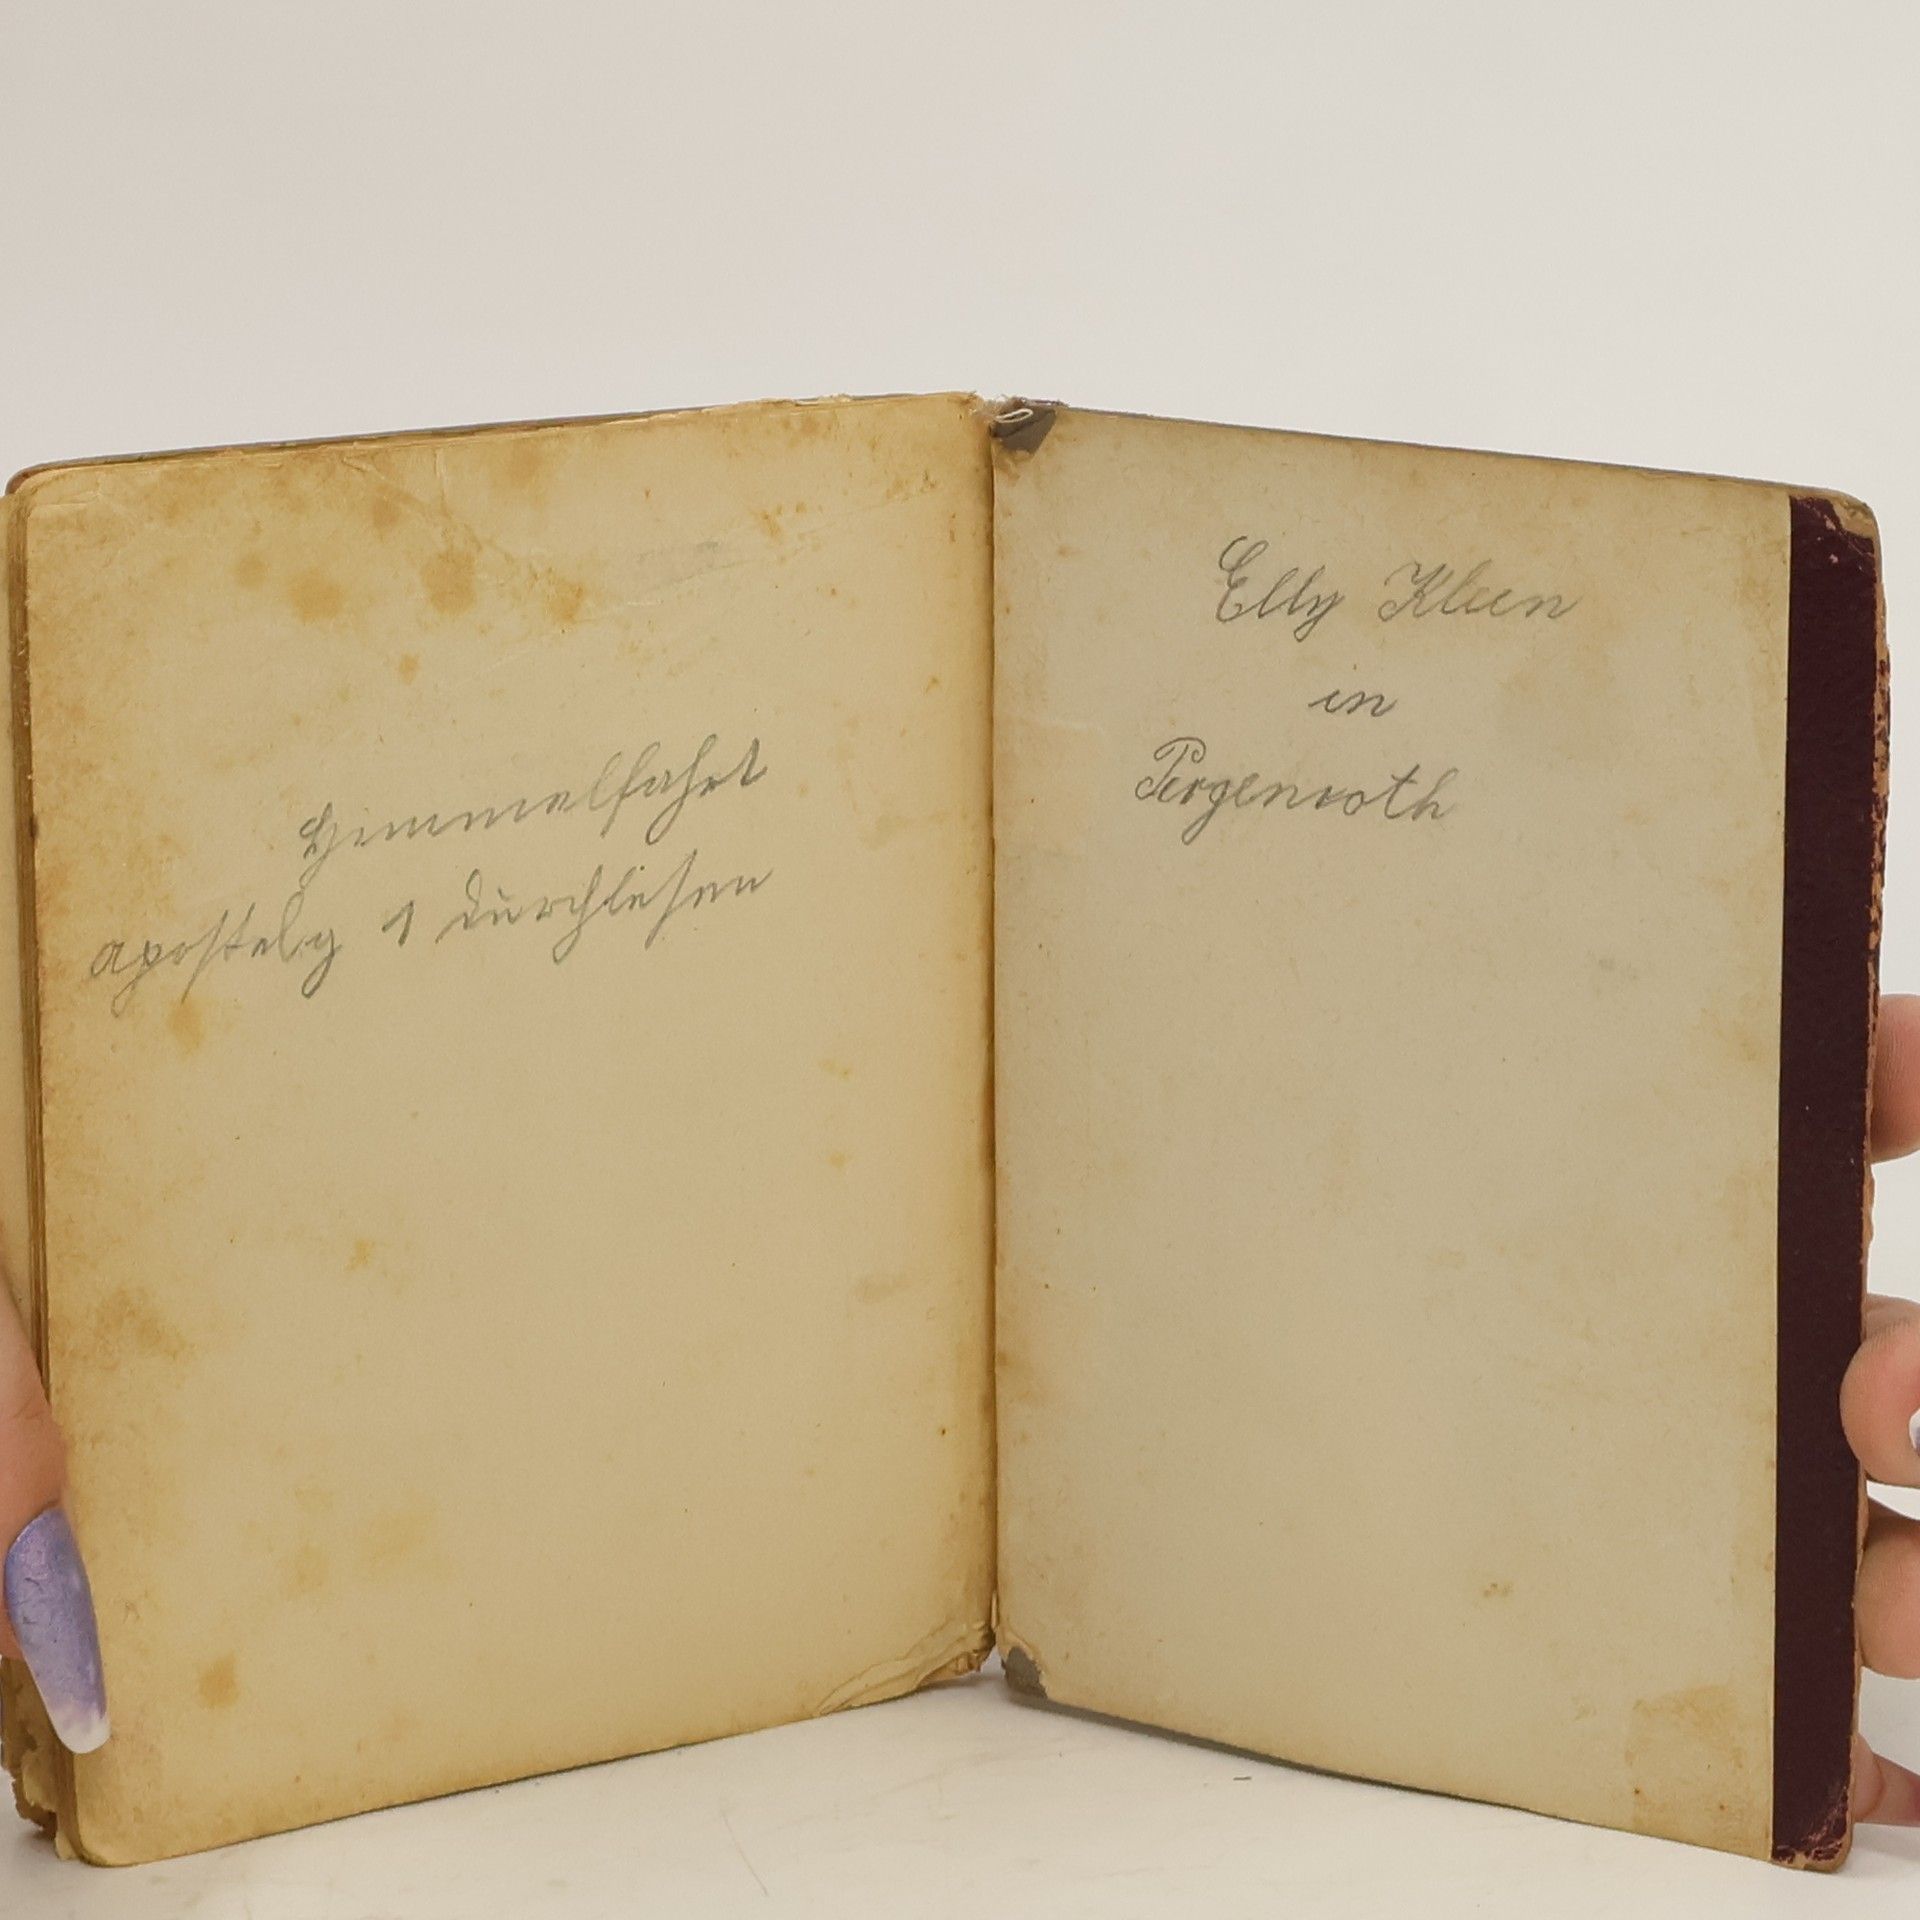 Himmelfahrt
Apostelg 1 durchlesen
Elly Kleen
in
Pergenroth